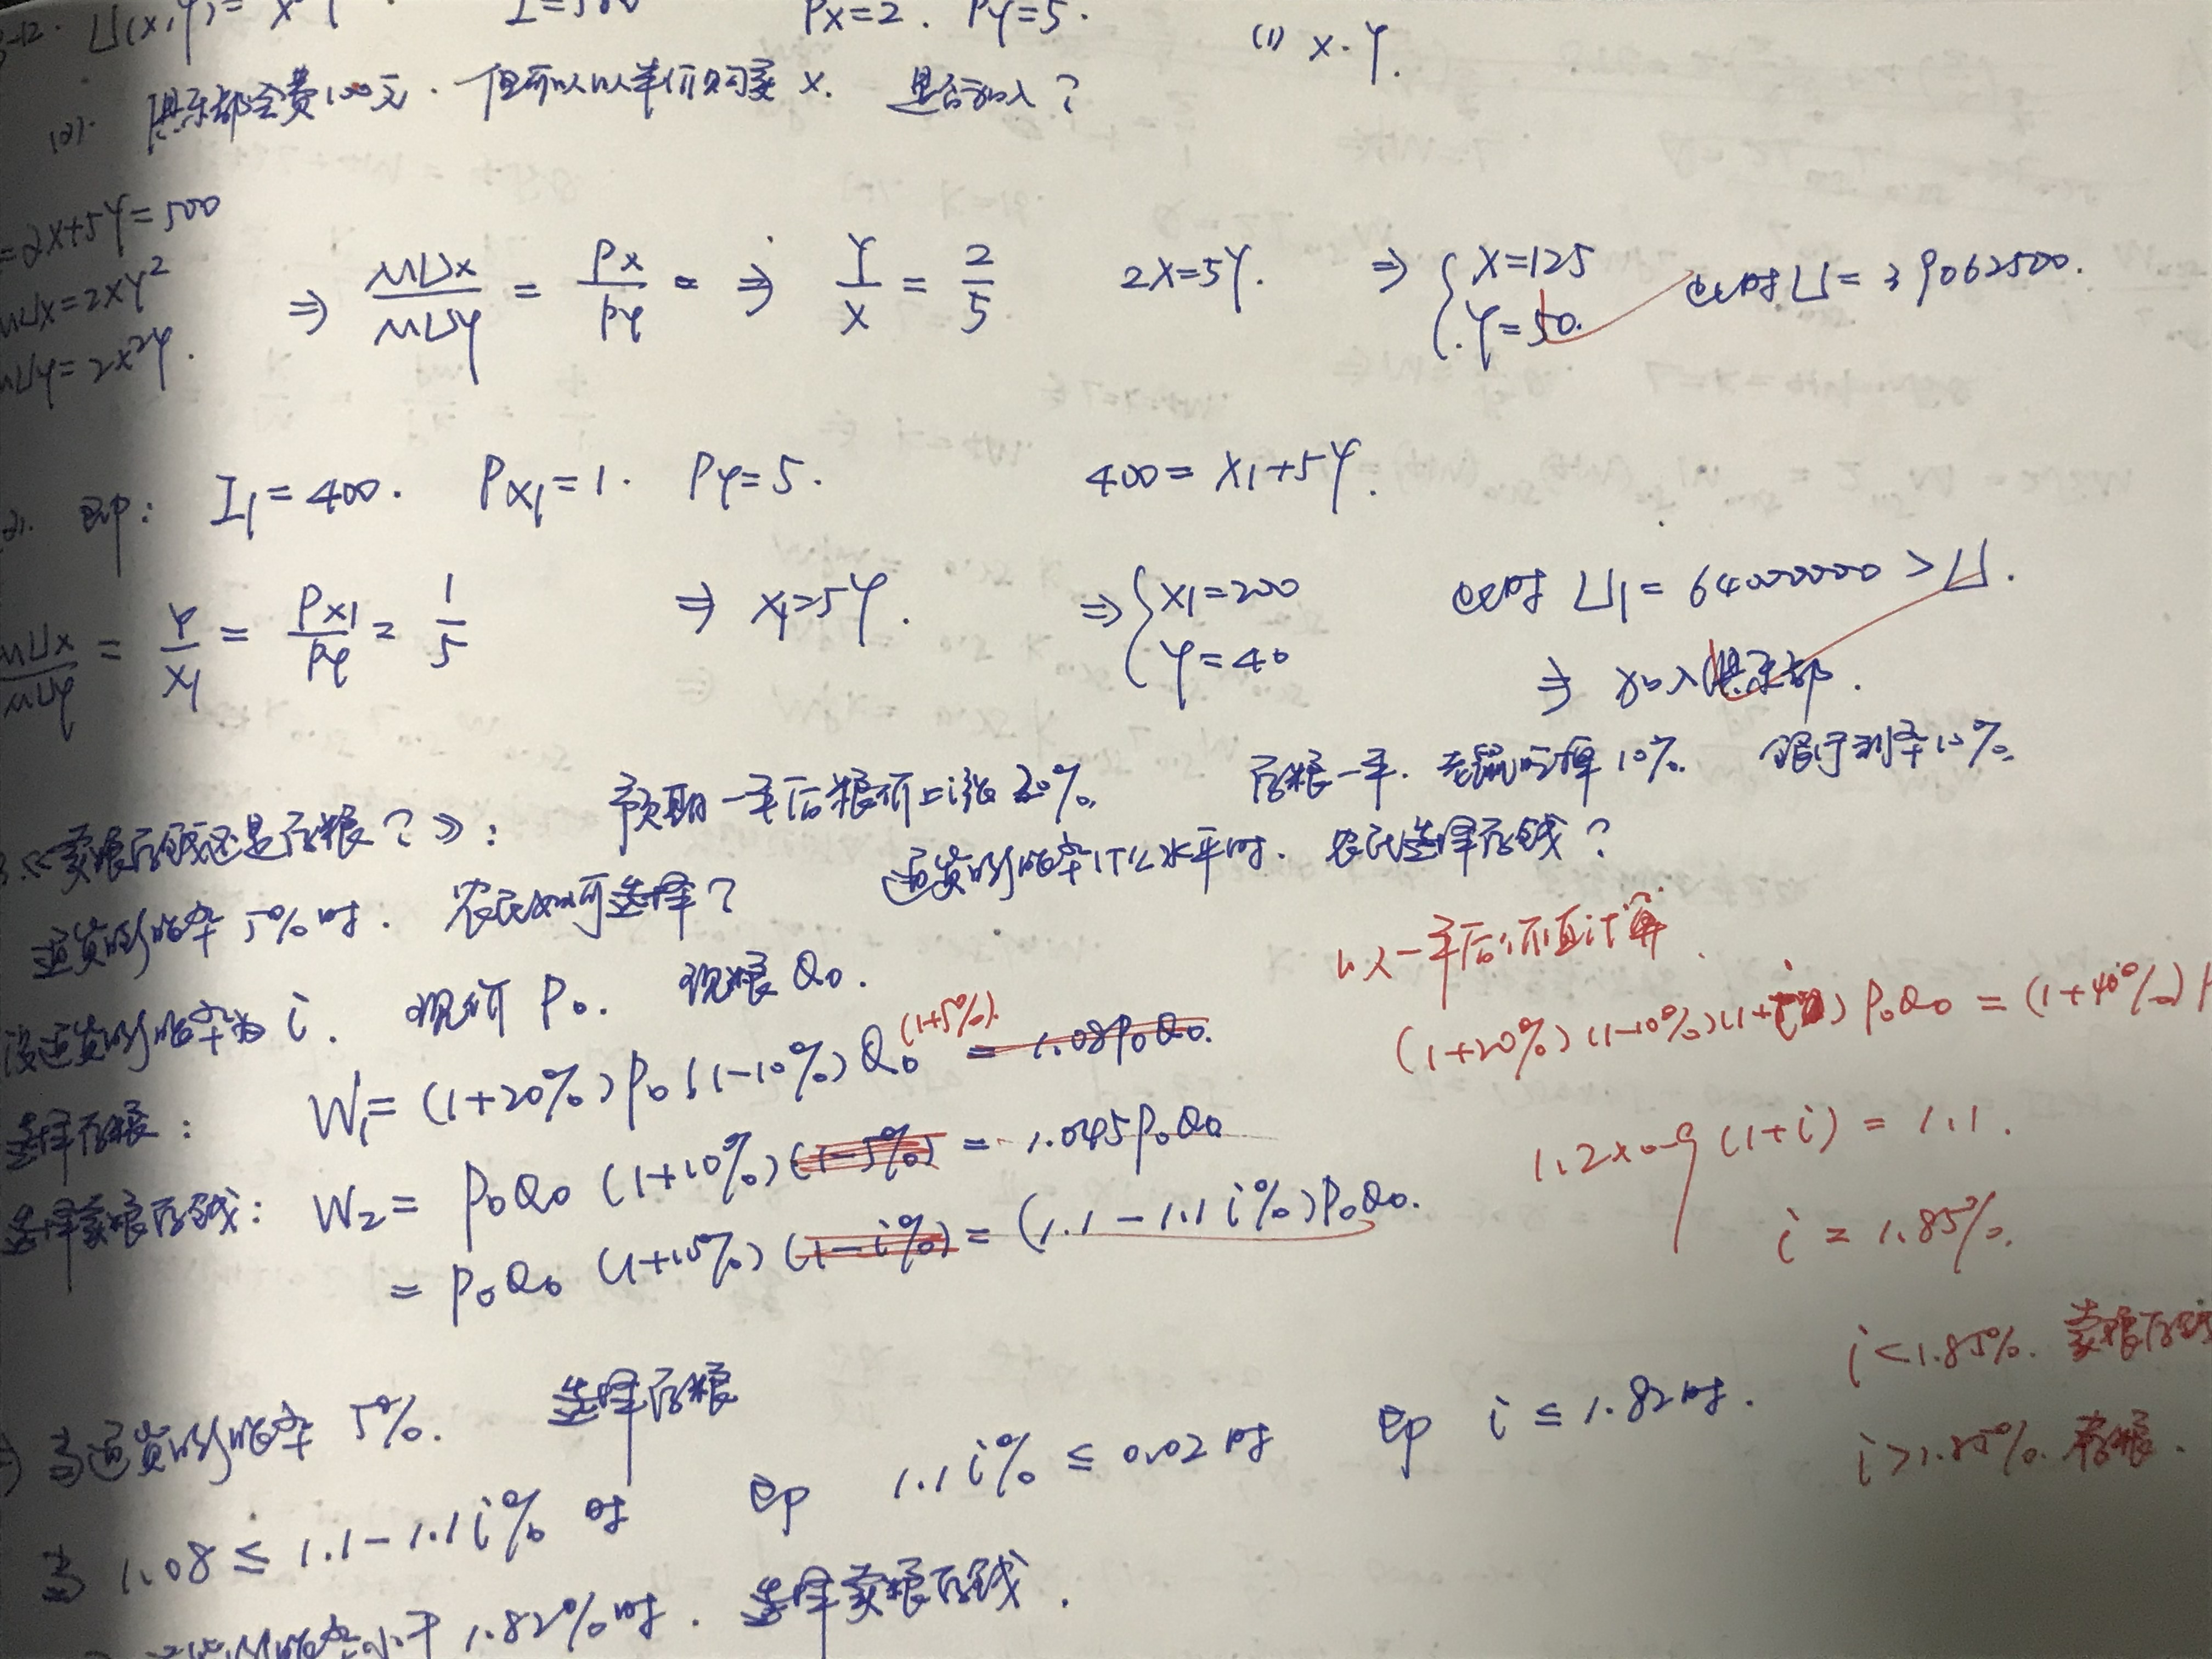 U(x,y)= x Y I=500 Px=2. Py=5. (1) x. Y.
(2). 俱乐部会费100元. 但可以以半价购买 x. 是否加入?
=2x+5Y=500
MUx=2xy²
MUy=2x²y.
⇒ MUx/MUy = Px/Py = ⇒ Y/X = 2/5 2x=5Y. ⇒ { X=125 Y=50. 此时 U=39062500.
即: I₁=400. Px₁=1. PY=5. 400= X₁+5Y.
MUx/MUy = Y/X₁ = Px₁/Py = 1/5 ⇒ X₁=5Y. ⇒ { X₁=200 Y=40 此时 U₁=64000000 >U.
⇒ 加入俱乐部.
《卖粮存钱还是存粮?》: 预期一年后粮价上涨20%. 存粮一年. 老鼠吃掉10%. 银行利率10%.
通货膨胀率5%时. 农民如何选择? 通货膨胀率什么水平时. 农民选择存钱?
设通货膨胀率为 i. 现价 P₀. 现粮 Q₀.
以一年后价值计算.
选择存粮: W₁= (1+20%)P₀(1-10%)Q₀ (1+5%). = 1.08P₀Q₀.
(1+20%)(1-10%)(1+i) P₀Q₀ = (1+10%)P
选择卖粮存钱: W₂= P₀Q₀ (1+10%)(1-5%) = 1.045P₀Q₀
1.2×0.9(1+i) = 1.1.
= P₀Q₀ (1+10%)(1-i%) = (1.1-1.1i%)P₀Q₀.
i = 1.85%.
i<1.85%. 卖粮存钱
当通货膨胀率 5%. 选择存粮
i>1.85%. 存粮.
当 1.08 ≤ 1.1-1.1i% 时 即 1.1i% ≤ 0.02时 即 i ≤ 1.82时.
小于 1.82%时. 选择卖粮存钱.